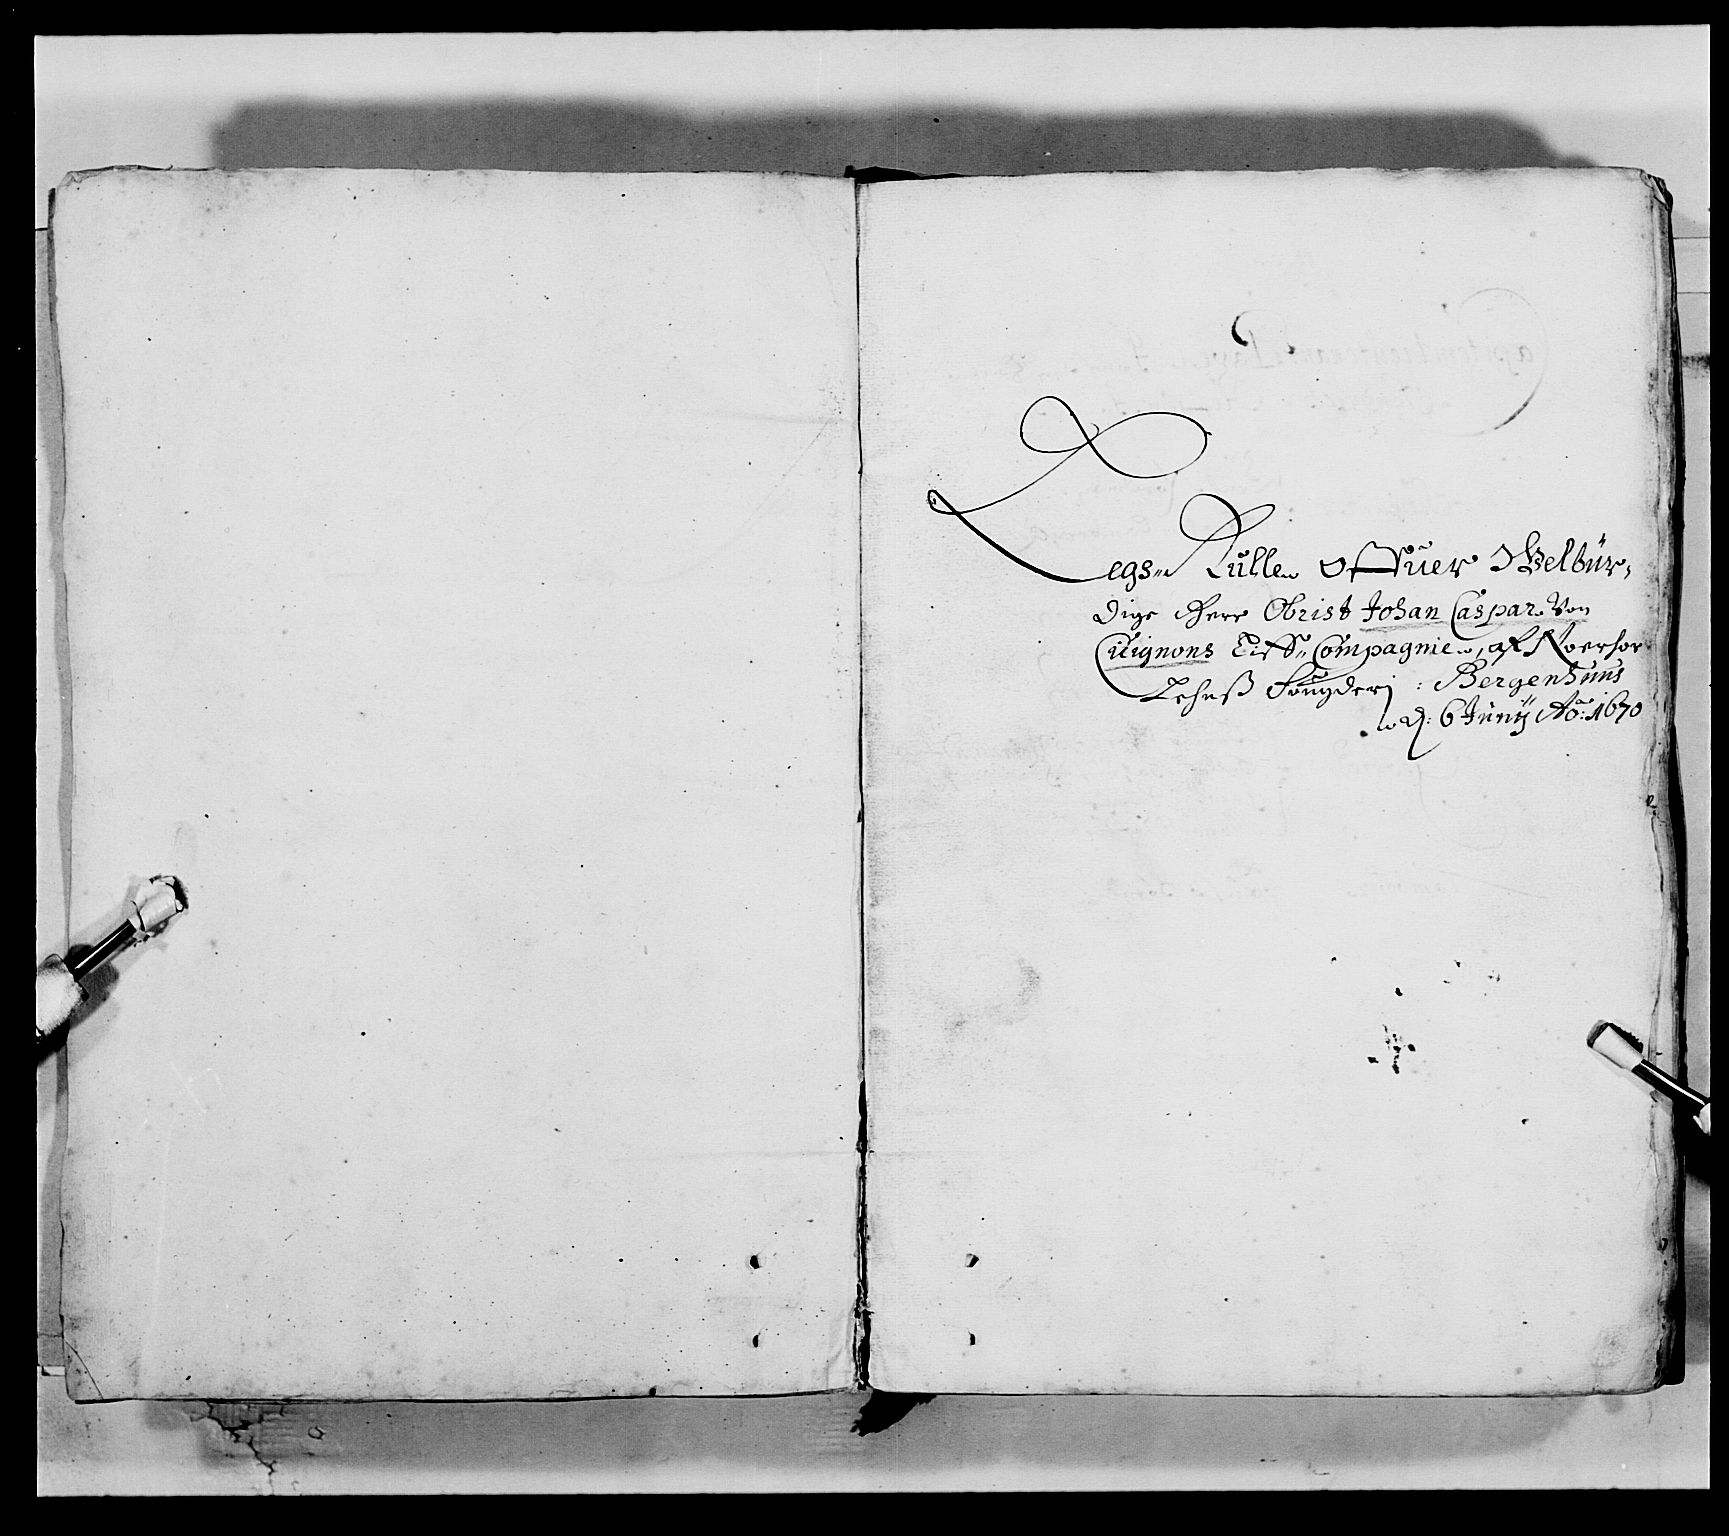 Legs Rulle offuer Welbür,
dige Herr Obrist Johan Caspar Von
Ciçignons Liff Compagnie, af Noerhor
Lehnß Fougderj : Bergenhuus
d: 6 Junij Ao: 1670